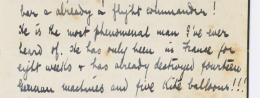 has a already a flight commander!
He is the most phenomenal man I've ever
heard of. He has only been in France for
eight weeks & has already destroyed fourteen
German machines and five Kite balloons!!!